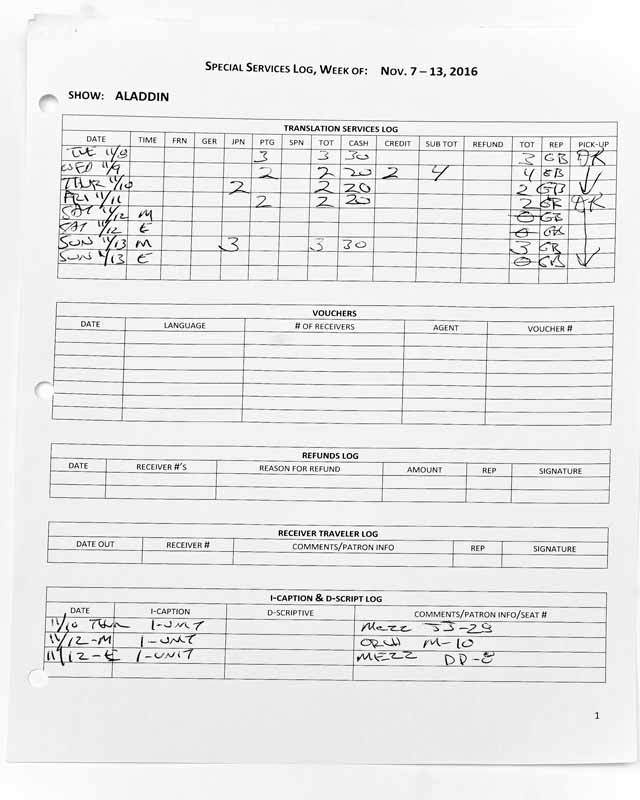 SPECIAL SERVICES LOG, WEEK OF: NOV. 7 – 13, 2016
SHOW: ALADDIN
TRANSLATION SERVICES LOG
DATE TIME FRN GER JPN PTG SPN TOT CASH CREDIT SUB TOT REFUND TOT REP PICK-UP
TUE 11/8 3 3 30 3 GB
WED 11/9 2 2 20 2 4 4 GB
THUR 11/10 2 2 20 2 GB
FRI 11/11 2 2 20 2 GB
SAT 11/12 M 0 GB
SAT 11/12 E 0 GB
SUN 11/13 M 3 3 30 3 GB
SUN 11/13 E 0 GB
VOUCHERS
DATE LANGUAGE # OF RECEIVERS AGENT VOUCHER #
REFUNDS LOG
DATE RECEIVER #'S REASON FOR REFUND AMOUNT REP SIGNATURE
RECEIVER TRAVELER LOG
DATE OUT RECEIVER # COMMENTS/PATRON INFO REP SIGNATURE
I-CAPTION & D-SCRIPT LOG
DATE I-CAPTION D-SCRIPTIVE COMMENTS/PATRON INFO/SEAT #
11/10 THUR 1-UNIT MEZZ JJ-29
11/12-M 1-UNIT ORCH M-10
11/12-E 1-UNIT MEZZ DD-8
1